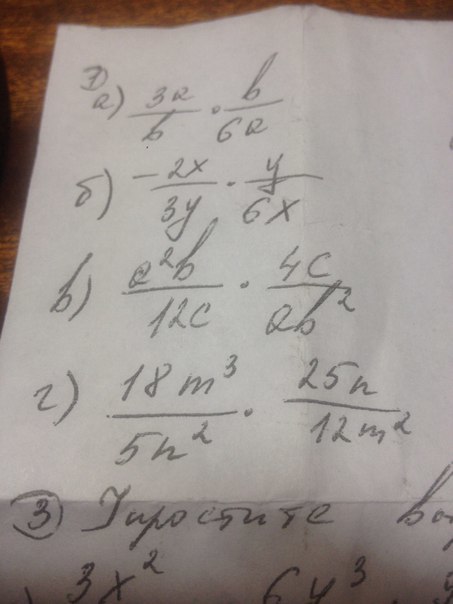 а) 3a/b · b/6a
б) -2x/3y · y/6x
в) a²b/12c · 4c/ab²
г) 18m³/5n² · 25n/12m²
③ Упростите
3x² 6y³